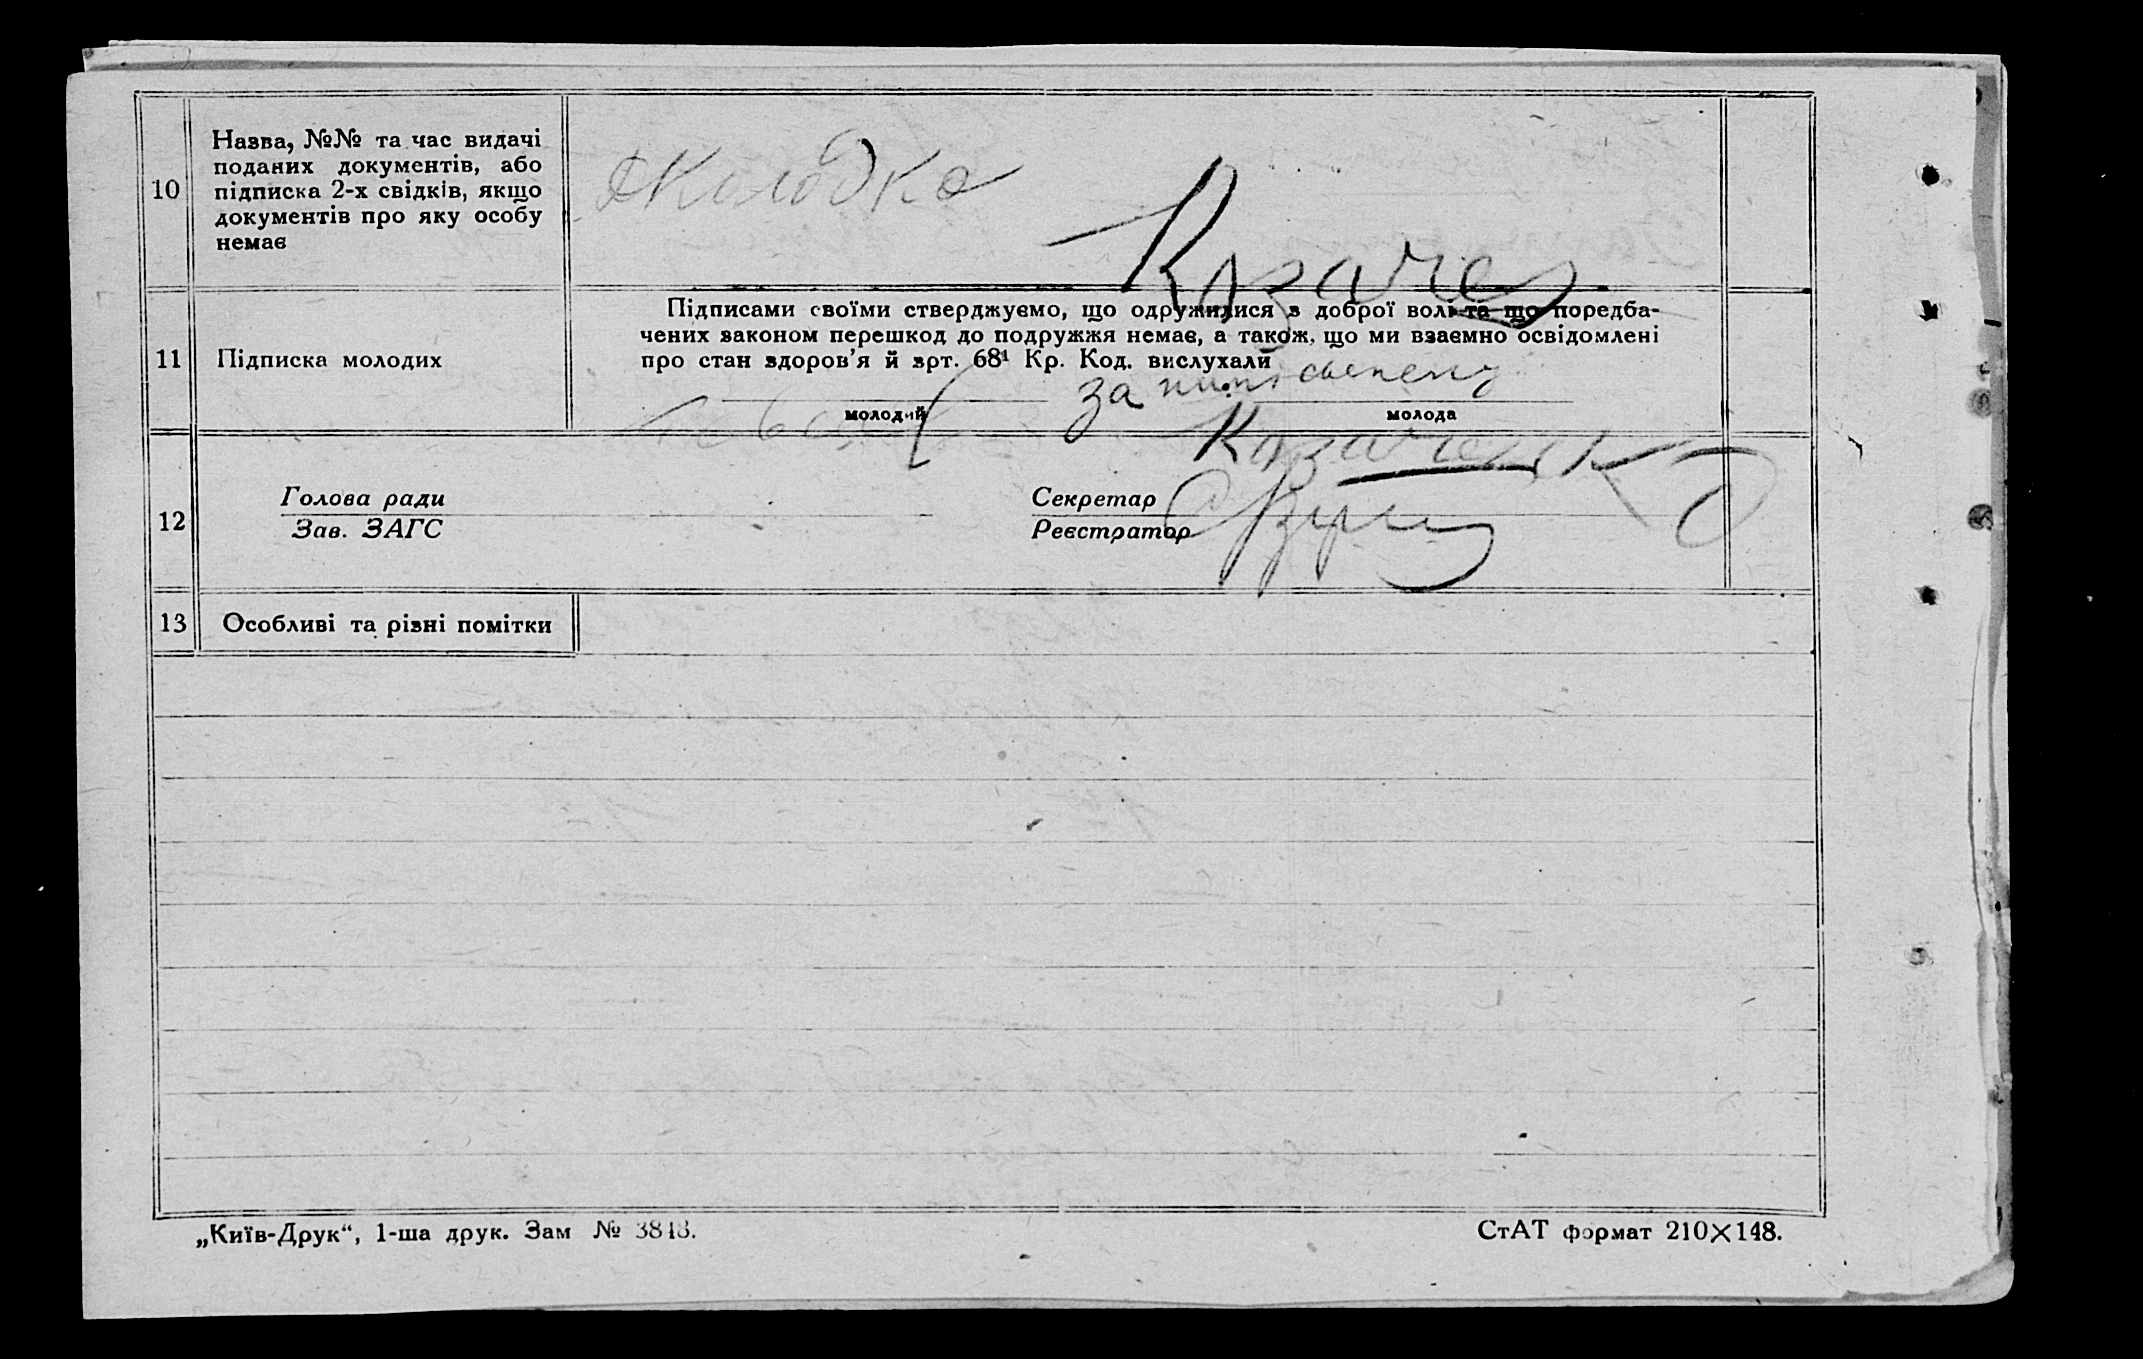 10
Назва, №№ та час видачі
поданих документів, або
підписка 2-х свідків, якщо
документів про яку особу
немає
Колодка
Козаче
11
Підписка молодих
Підписами своїми стверджуємо, що одружилися з доброї волі та що поредба-
чених законом перешкод до подружжя немає, а також, що ми взаємно освідомлені
про стан здоров’я й зрт. 68¹ Кр. Код. вислухали
за
молодий
молода
Козаченко
12
Голова ради
Зав. ЗАГС
Секретар
Реєстратор
13
Особливі та різні помітки
„Київ-Друк“, 1-ша друк. Зам №
СтАТ формат 210×148.